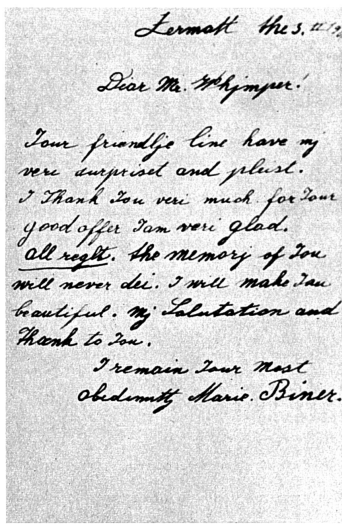 Zermatt the 3.
Dear Mr. Whjmper!
Your friendlje line have mj
veri surpriset and pleist.
I Thank You veri much for Your
good offer I am veri glad.
all reglt. the memory of You
will never dei. I will make You
beautiful. Mj Salutation and
Thank to You.
I remain Your most
Marie. Biner.